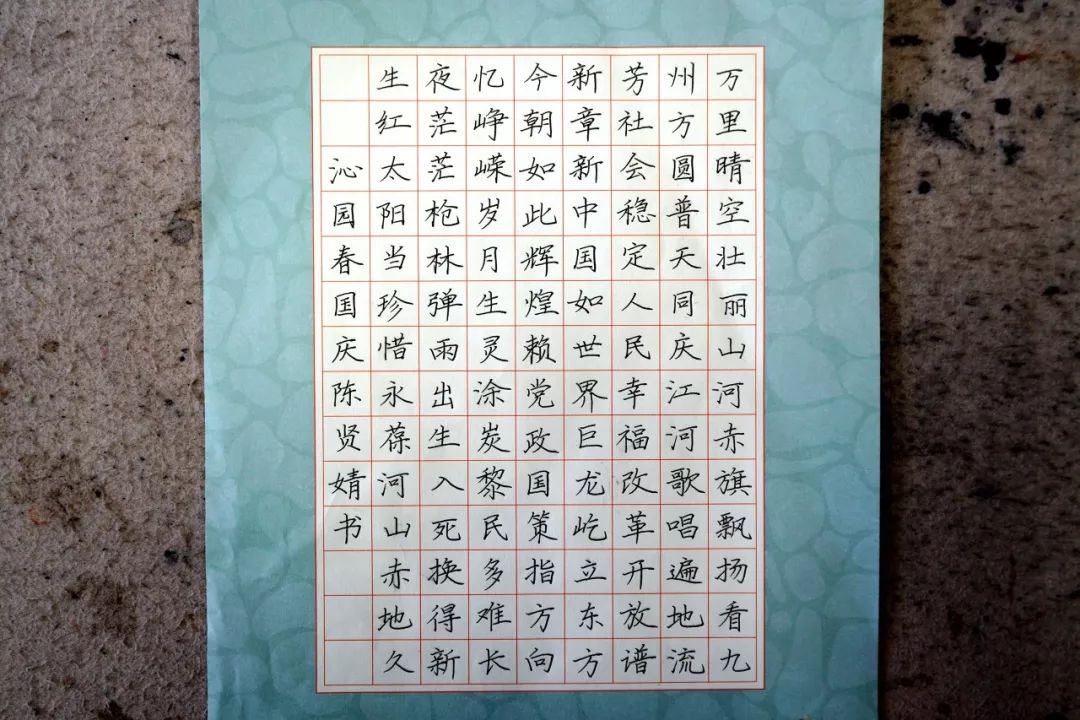 万里晴空壮丽山河赤旗飘扬看九
州方圆普天同庆江河歌唱遍地流
芳社会稳定人民幸福改革开放谱
新章新中国如世界巨龙屹立东方
今朝如此辉煌赖党政国策指方向
忆峥嵘岁月生灵涂炭黎民多难长
夜茫茫枪林弹雨出生入死换得新
生红太阳当珍惜永葆河山赤地久
沁园春国庆陈贤婧书